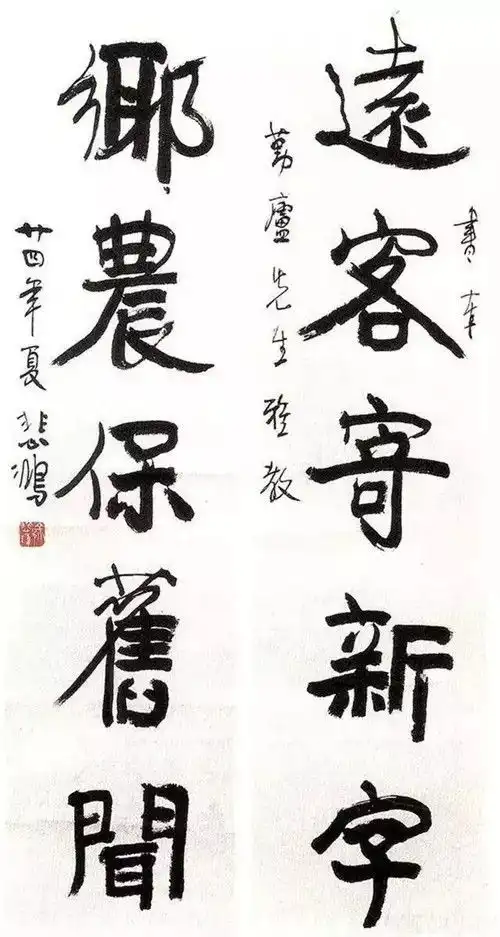 書奉
遠客寄新字
勤廬先生雅教
鄉農保舊聞
廿四年夏 悲鴻